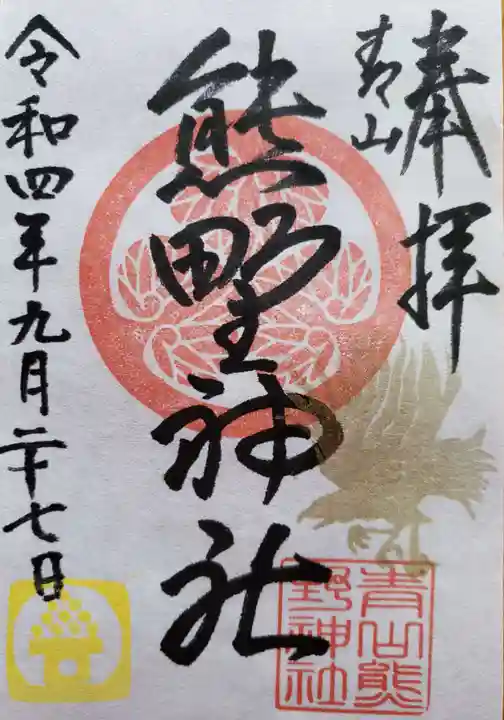 奉拝
青山
熊野神社
令和四年九月二十七日
青山熊
野神社